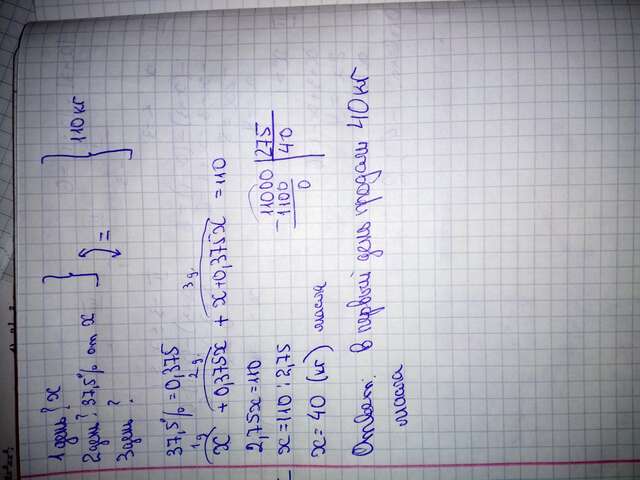 1 день ? х } 110 кг
2 день ? 37,5% от х } =
3 день ?
37,5% = 0,375
1 д. 2 д. 3 д.
х + 0,375х + х + 0,375х = 110
2,75х = 110
х = 110 : 2,75
х = 40 (кг) масла
11000 | 275
- 1100 | 40
0
Ответ: в первый день продали 40 кг
масла